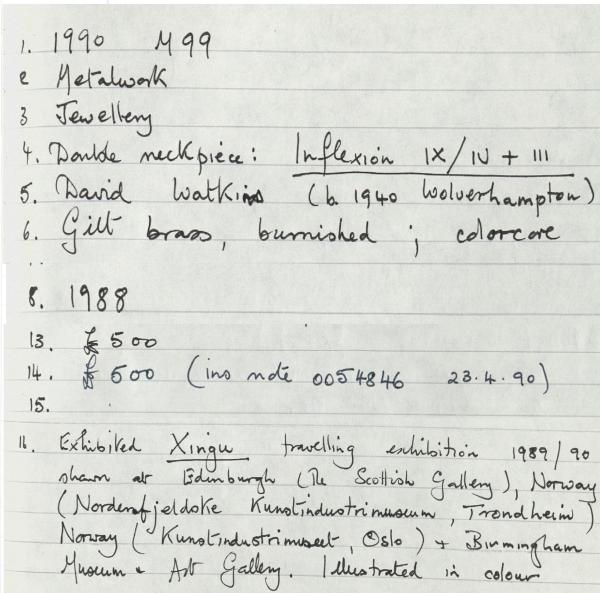 1. 1990 M 99
2 Metalwork
3 Jewellery
4. Double neckpiece: Inflexion IX/IV + III
5. David Watkins (b. 1940 Wolverhampton)
6. Gilt brass, burnished ; colorcore
..
8. 1988
13. £ 500
14. £ 500 (ins note 0054846 23.4.90)
15.
16. Exhibited Xingu travelling exhibition 1989/90
shown at Edinburgh (The Scottish Gallery), Norway
(Nordenfjeldske Kunstindustrimuseum, Trondheim)
Norway (Kunstindustrimuseet, Oslo) + Birmingham
Museum & Art Gallery. Illustrated in colour